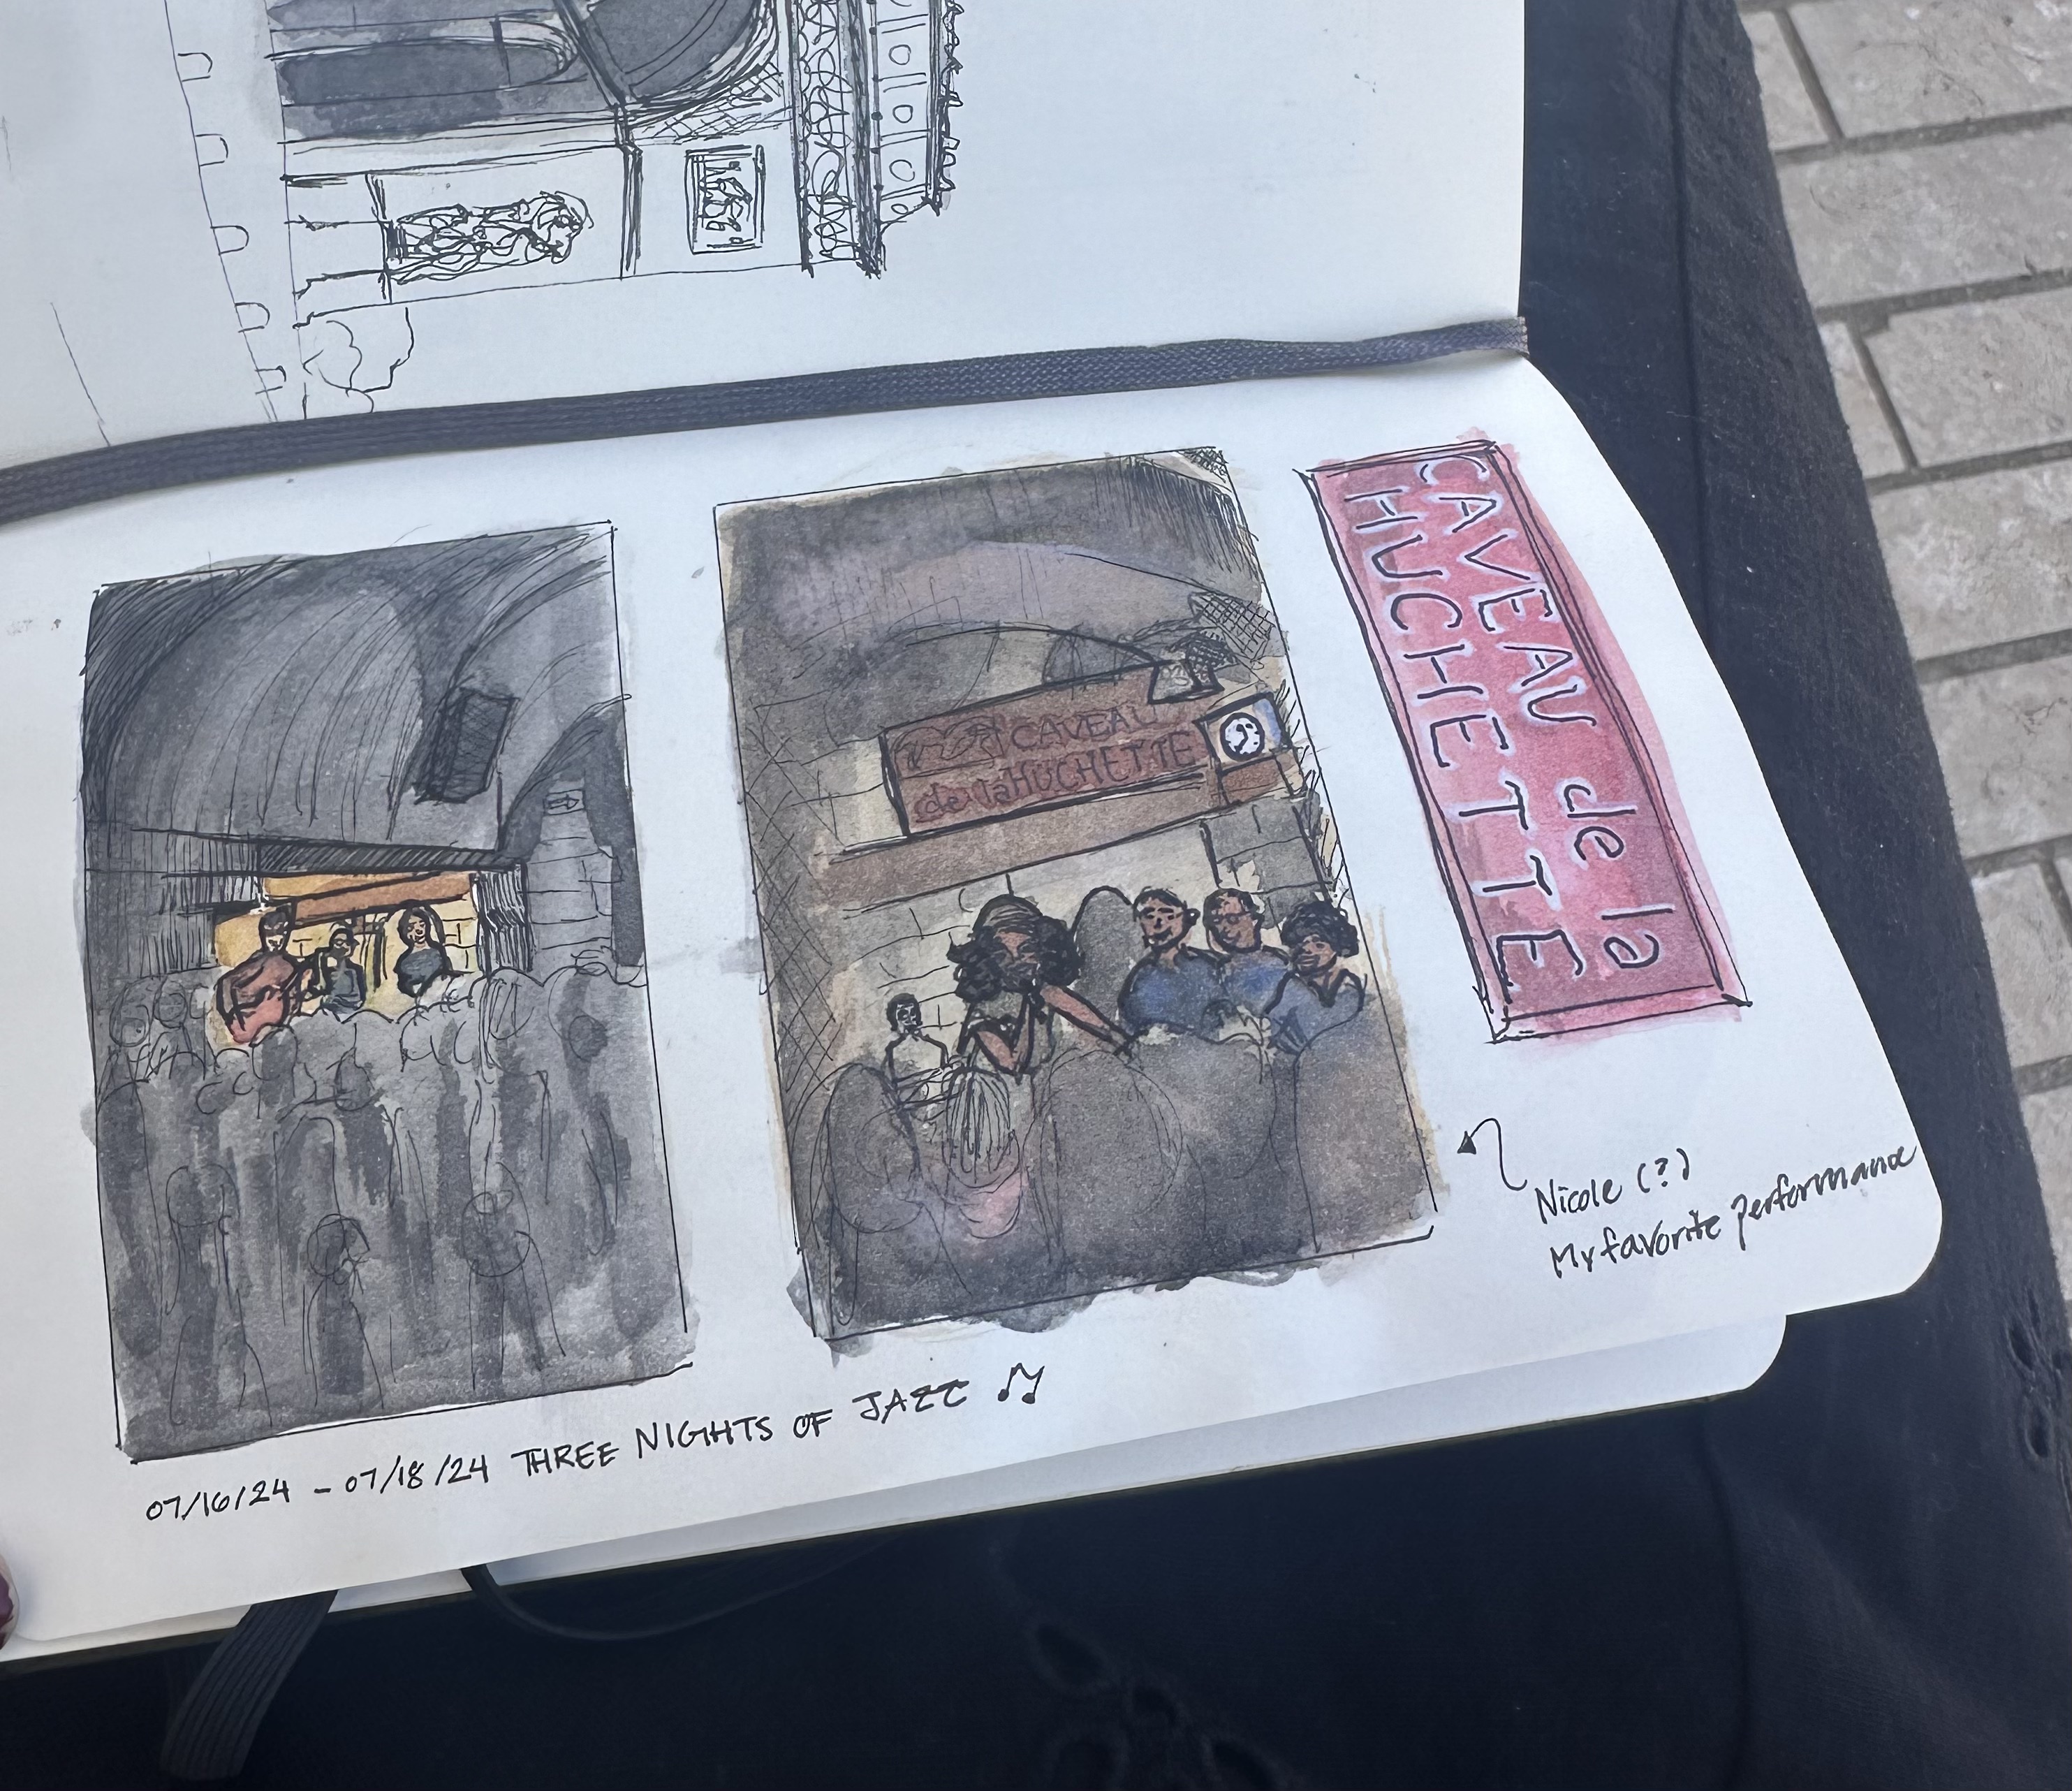 CAVEAU
de la HUCHETTE
CAVEAU de la
HUCHETTE
Nicole (?)
My favorite performance
07/16/24 - 07/18/24 THREE NIGHTS OF JAZZ